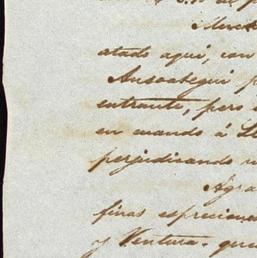 atado aquí, con
Ansoategui p
entrante, pero
en cuando á
perjudicando
Agra
finas espreciones
y Ventura. que